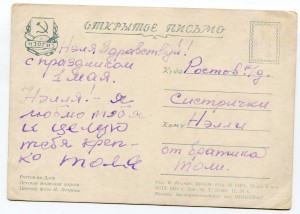 ОТКРЫТОЕ ПИСЬМО
ИЗОГИЗ
Нэля Здравствуй!
с праздником
1 мая.
Нэлля! - я
люблю тебя
и целую
тебя креп-
ко Толя
Куда Ростов н/д
Систрички
Кому Нэлли
от братика
Толи.
Ростов-на-Дону